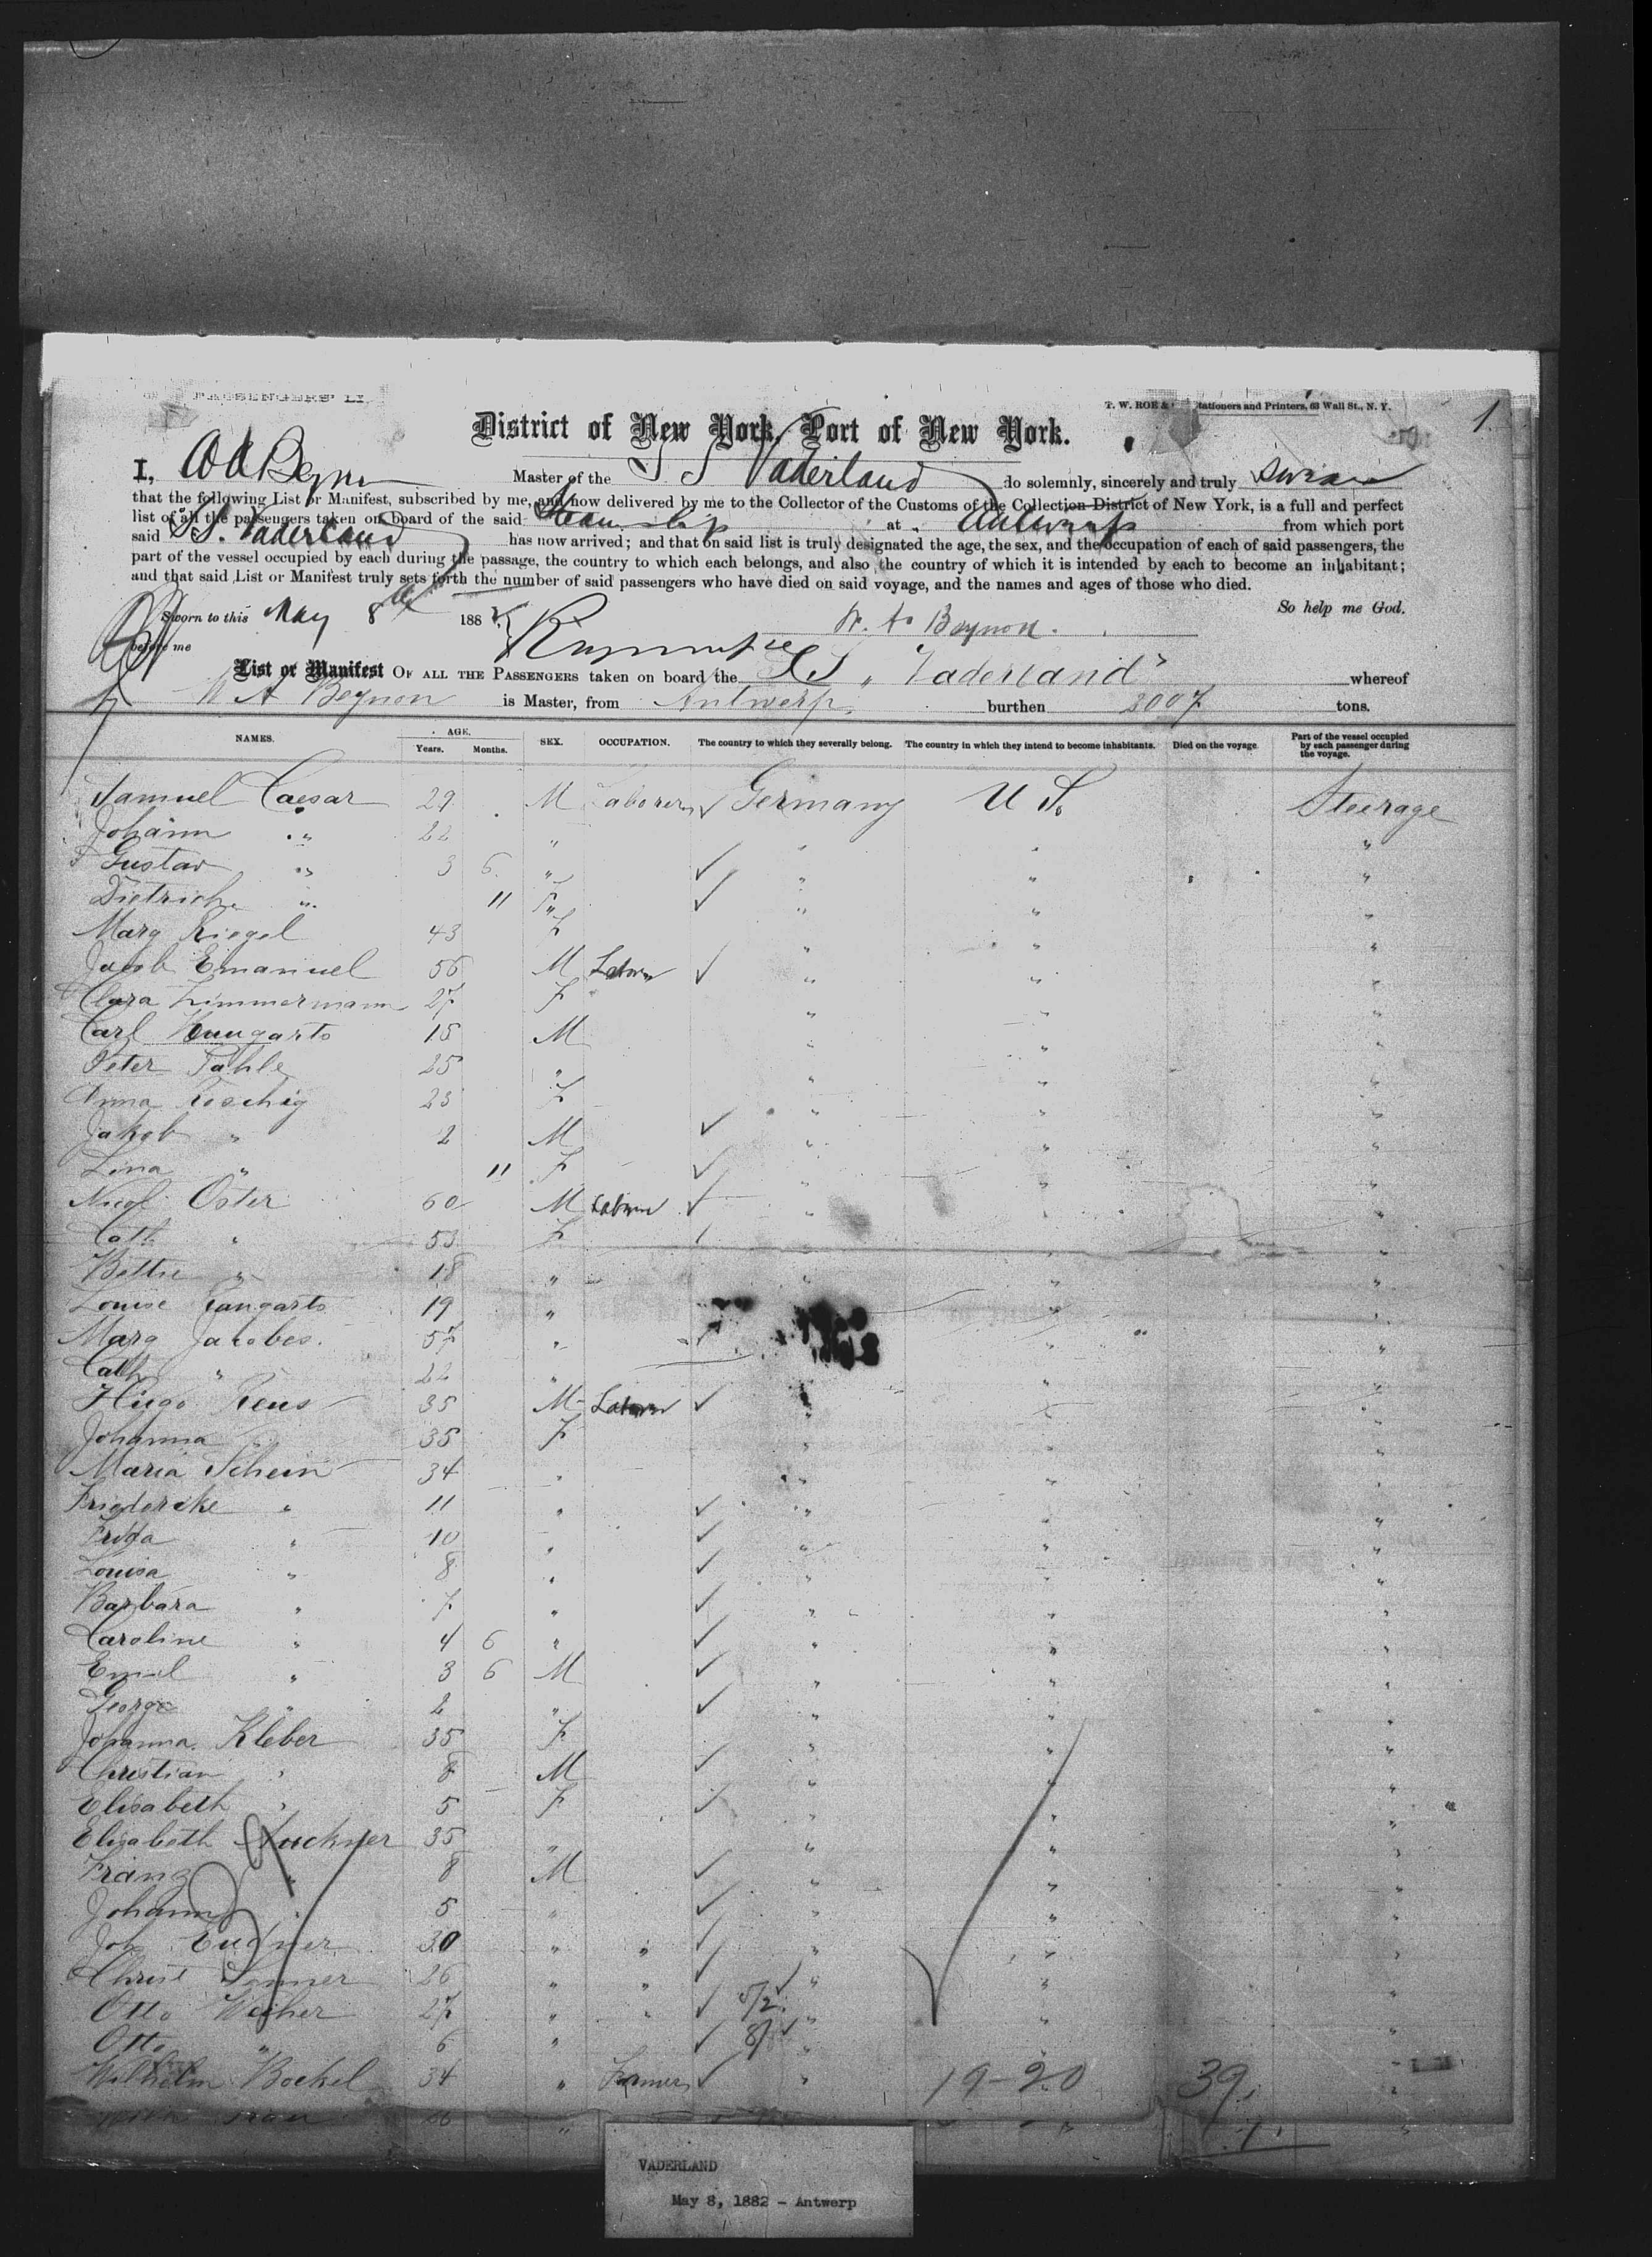 PASSENGERS' LI
T. W. ROE & tationers and Printers, 63 Wall St., N. Y.
1.
District of New York, Port of New York.
I, W A Beynon Master of the S S Vaderland do solemnly, sincerely and truly swear
that the following List or Manifest, subscribed by me, and now delivered by me to the Collector of the Customs of the Collection District of New York, is a full and perfect
list of all the passengers taken on board of the said Steamship at Antwerp from which port
said S.S. Vaderland has now arrived; and that on said list is truly designated the age, the sex, and the occupation of each of said passengers, the
part of the vessel occupied by each during the passage, the country to which each belongs, and also the country of which it is intended by each to become an inhabitant;
and that said List or Manifest truly sets forth the number of said passengers who have died on said voyage, and the names and ages of those who died.
So help me God.
Sworn to this May 8th 1882 W. A. Beynon.
before me
List or Manifest OF ALL THE PASSENGERS taken on board the SS "Vaderland" whereof
W A Beynon is Master, from Antwerp. burthen 3007 tons.
NAMES. AGE. Years. Months. SEX. OCCUPATION. The country to which they severally belong. The country in which they intend to become inhabitants. Died on the voyage. Part of the vessel occupied by each passenger during the voyage.
Samuel Caesar 29 M Laborer ✓ Germany U S. Steerage
Johann " 22 " " " "
Gustav " 3 6 " ✓ " " "
Dietrich " 11 F ✓ " " "
Marg Riegel 43 F " " "
Jacob Emanuel 56 M Laborer ✓ " " "
Clara Zimmermann 27 F " " "
Carl 15 M " " "
Peter Pahle 25 " " " "
Anna Roschig 23 F " " "
Jakob " 2 M ✓ " " "
Lina " 11 F ✓ " " "
Nicol Oster 60 M Laborer ✓ " " "
Cath " 53 F ✓ " " "
Bettie " 18 " " " "
Louise 19 " " " "
Marg Jacobes. 57 " ✓ " "
Cath " 22 " " "
Hugo Reus 35 M Laborer ✓ " " "
Johanna " 35 F " " "
Maria Schein 34 " " " "
Friedericke " 11 " ✓ " " "
Frida " 10 " ✓ " " "
Louisa " 8 " ✓ " " "
Barbara " 7 " ✓ " " "
Caroline " 4 6 " ✓ " " "
Emil " 3 6 M ✓ " " "
George " 2 " ✓ " " "
Johanna Kleber 35 F " " "
Christian " 8 M ✓ " " "
Elisabeth " 5 F ✓ " " "
Elisabeth 35 " " " "
Franz " 8 M ✓ " " "
Johann " 5 " ✓ " " "
Joh 30 " " ✓ " " "
Christ 26 " " ✓ " " "
Otto Weiher 27 " " ✓ " " "
Otto " 6 " ✓ " "
Wilhelm Bockel 34 " Farmer ✓ " 19-20 39. "
VADERLAND
May 8, 1882 - Antwerp